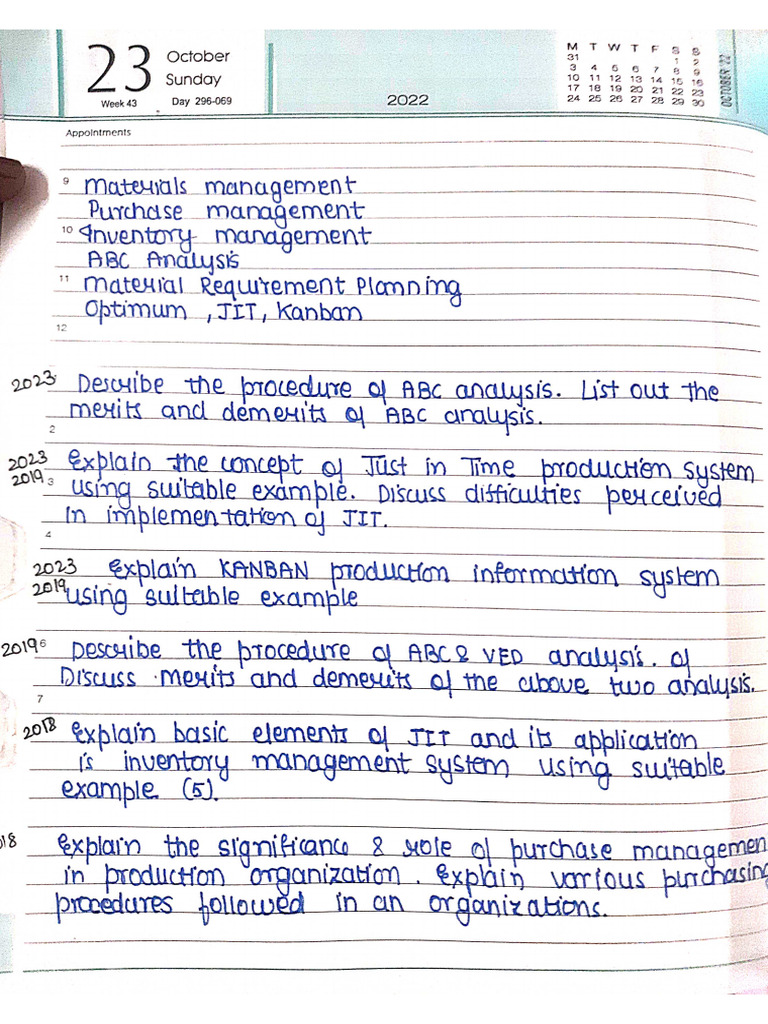 23 October
Sunday
Week 43 Day 296-069
2022
M T W T F S S
31 1 2
3 4 5 6 7 8 9
10 11 12 13 14 15 16
17 18 19 20 21 22 23
24 25 26 27 28 29 30
OCTOBER '22
Appointments
9 Materials management
Purchase management
10 Inventory management
ABC Analysis
11 Material Requirement Planning
Optimum , JIT, Kanban
12
2023 Describe the procedure of ABC analysis. List out the
merits and demerits of ABC analysis.
2
2023 Explain the concept of Just in Time production system
2019 3 using suitable example. Discuss difficulties perceived
in implementation of JIT.
4
2023 Explain KANBAN production information system
2019 using suitable example
2019 6 Describe the procedure of ABC & VED analysis. of
Discuss merits and demerits of the above two analysis.
7
2018 Explain basic elements of JIT and its application
is inventory management system using suitable
example (5).
018 Explain the significance & role of purchase managemen
in production organization. Explain various purchasing
procedures followed in an organizations.